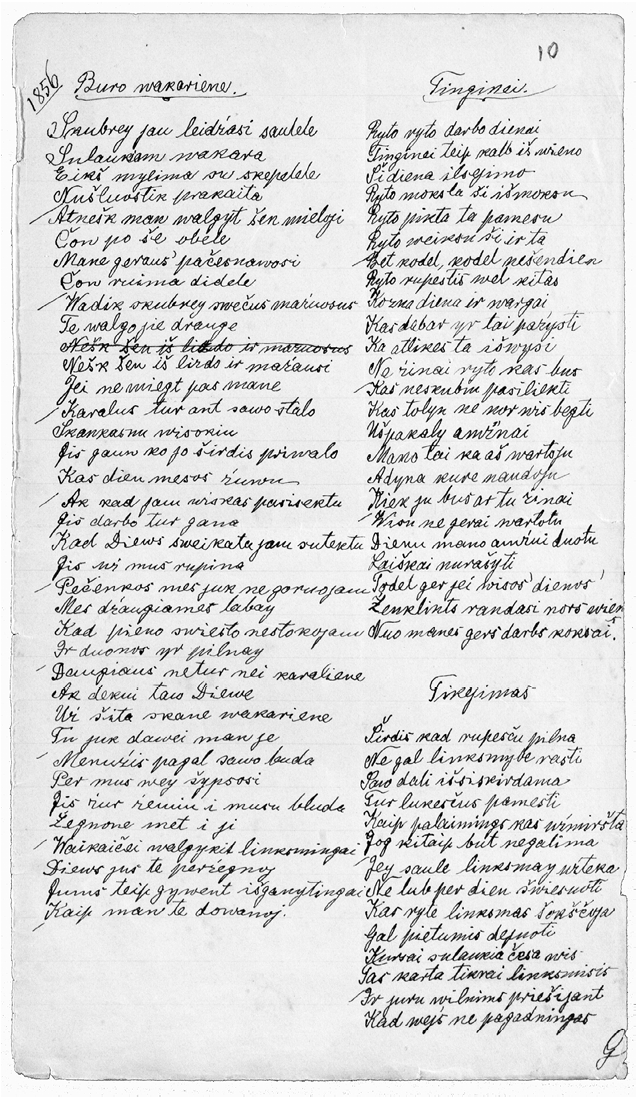 10
1856
Buro wakariene.
Skubrey jau leidźasi saulele
Sulaukam wakara
Eikš mylima su skepetele
Nušluostik prakaita
Atnešk man walgyt šen mieloji
Čon po še obele
Mane geraus pačesnawosi
Čon ruima didele
Wadik skubrey swečus mažuosus
Te walgo jie drauge
Nešk šen iš lizdo ir mažuosus
Nešk šen iš lizdo ir mažausi
Jei ne miegt pas mane
Karalus tur ant sawo stalo
Skankasnu wisokiu
Jis gaun ko jo širdis priwalo
Kas dien mesos źuwu
Ak kad jam wiskas pasisektu
Jis darbo tur gana
Kad Diews sweikata jam sutektu
Jis uź mus rupina
Pečenkos mes juk ne gorwojam
Mes dźaugiames labay
Kad pieno swiesto nestokojam
Ir duonos yr pilnay
Daugiaus netur nei karaliene
Ak dekui taw Diewe
Už šita skane wakariene
Tu juk dawei man je
Menužis pagal sawo buda
Per mus wey šypsosi
Jis źur źemiu i musu bluda
Žegnone met i ji
Waikaičei walgykit linksmingai
Diews jus te peržegnoj
Jums teip gywent išganytingai
Kaip man te dowanoj.
Tinginei.
Ryto ryto darbo dienai
Tinginei teip kalb iš wieno
Ši diena ilsejimo
Ryto moksla ši išmoksu
Ryto pikta ta pamesu
Ryto weiksu ši ir ta
Bet kodel, kodel ne šendien
Ryto rupestis wel kitas
Kožna diena ir wargai
Kas dabar yr tai paźysti
Ka atlikes ta išwysi
Ne źinai ryto kas bus
Kas neskubin pasiliekti
Kas tolyn ne nor wis begti
Užpakaly amžinai
Mano tai ka aš wartoju
Adyna kure naudoju
Kiek ju bus ar tu žinai
Wisu ne gerai wartotu
Dienu mano amźiui duotu
Laiškai nurašyti
Todel ger jei wisos dienos
Ženklints randasi nors wien
Nuo manes gers darbs koksai.
Tikejimas
Širdis kad rupesču pilna
Ne gal linksmybe rasti
Sawo dali išsiskirdama
Tur lukesčius pamesti
Kaip palainings kas užmiršta
Jog kitaip but negalima
Jey saule linksmay užteka
Ne lub per dien šwiesuoti
Kas ryte linksmas šokščoja
Gal pietumis dejuoti
Kursai sulaukia česa wis
Tas karta tikrai linksmisis
Ir juru wilnims priešijant
Kad wejs ne pagadningas